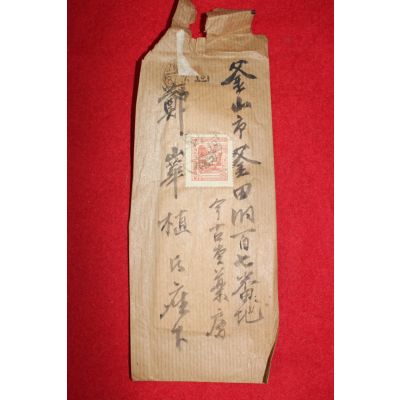 釜山市釜田洞百七番地
今古堂藥房
鄭崋植氏座下